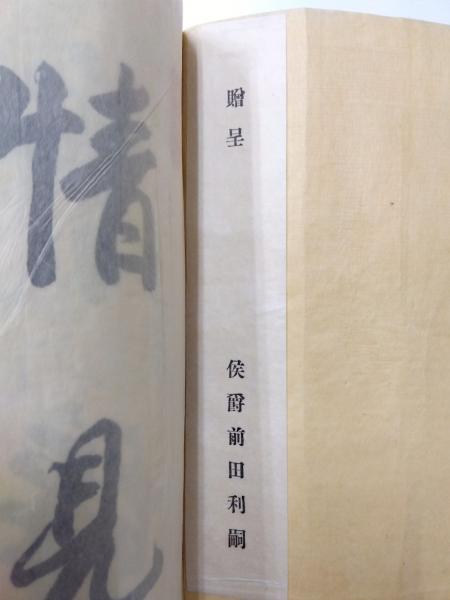 贈呈
侯爵前田利嗣
情見